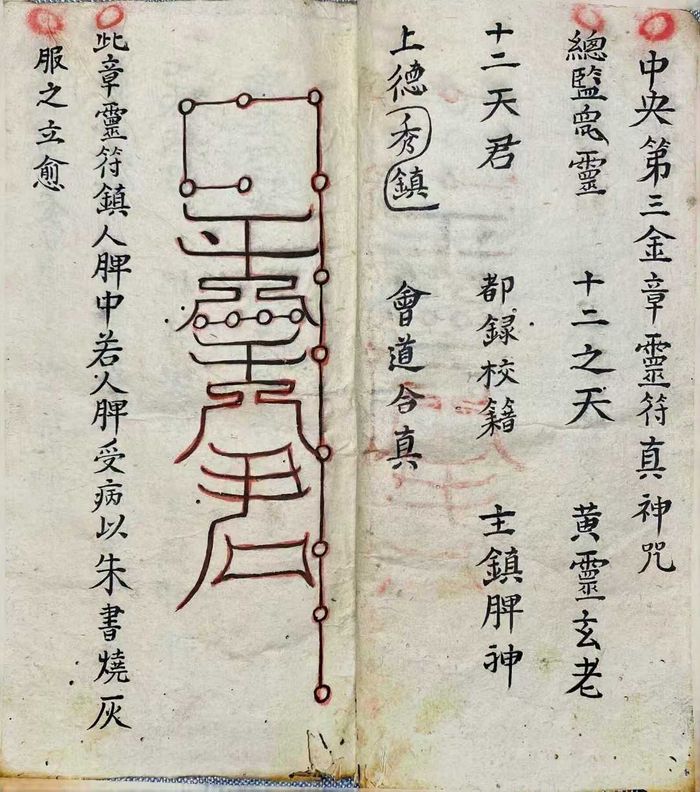 中央第三金章靈符真神咒
總監眾靈 十二之天 黄靈玄老
十二天君 都録校籍 主鎮脾神
上德秀鎮 會道合真
此章靈符鎮人脾中若人脾受病以朱書燒灰
服之立愈